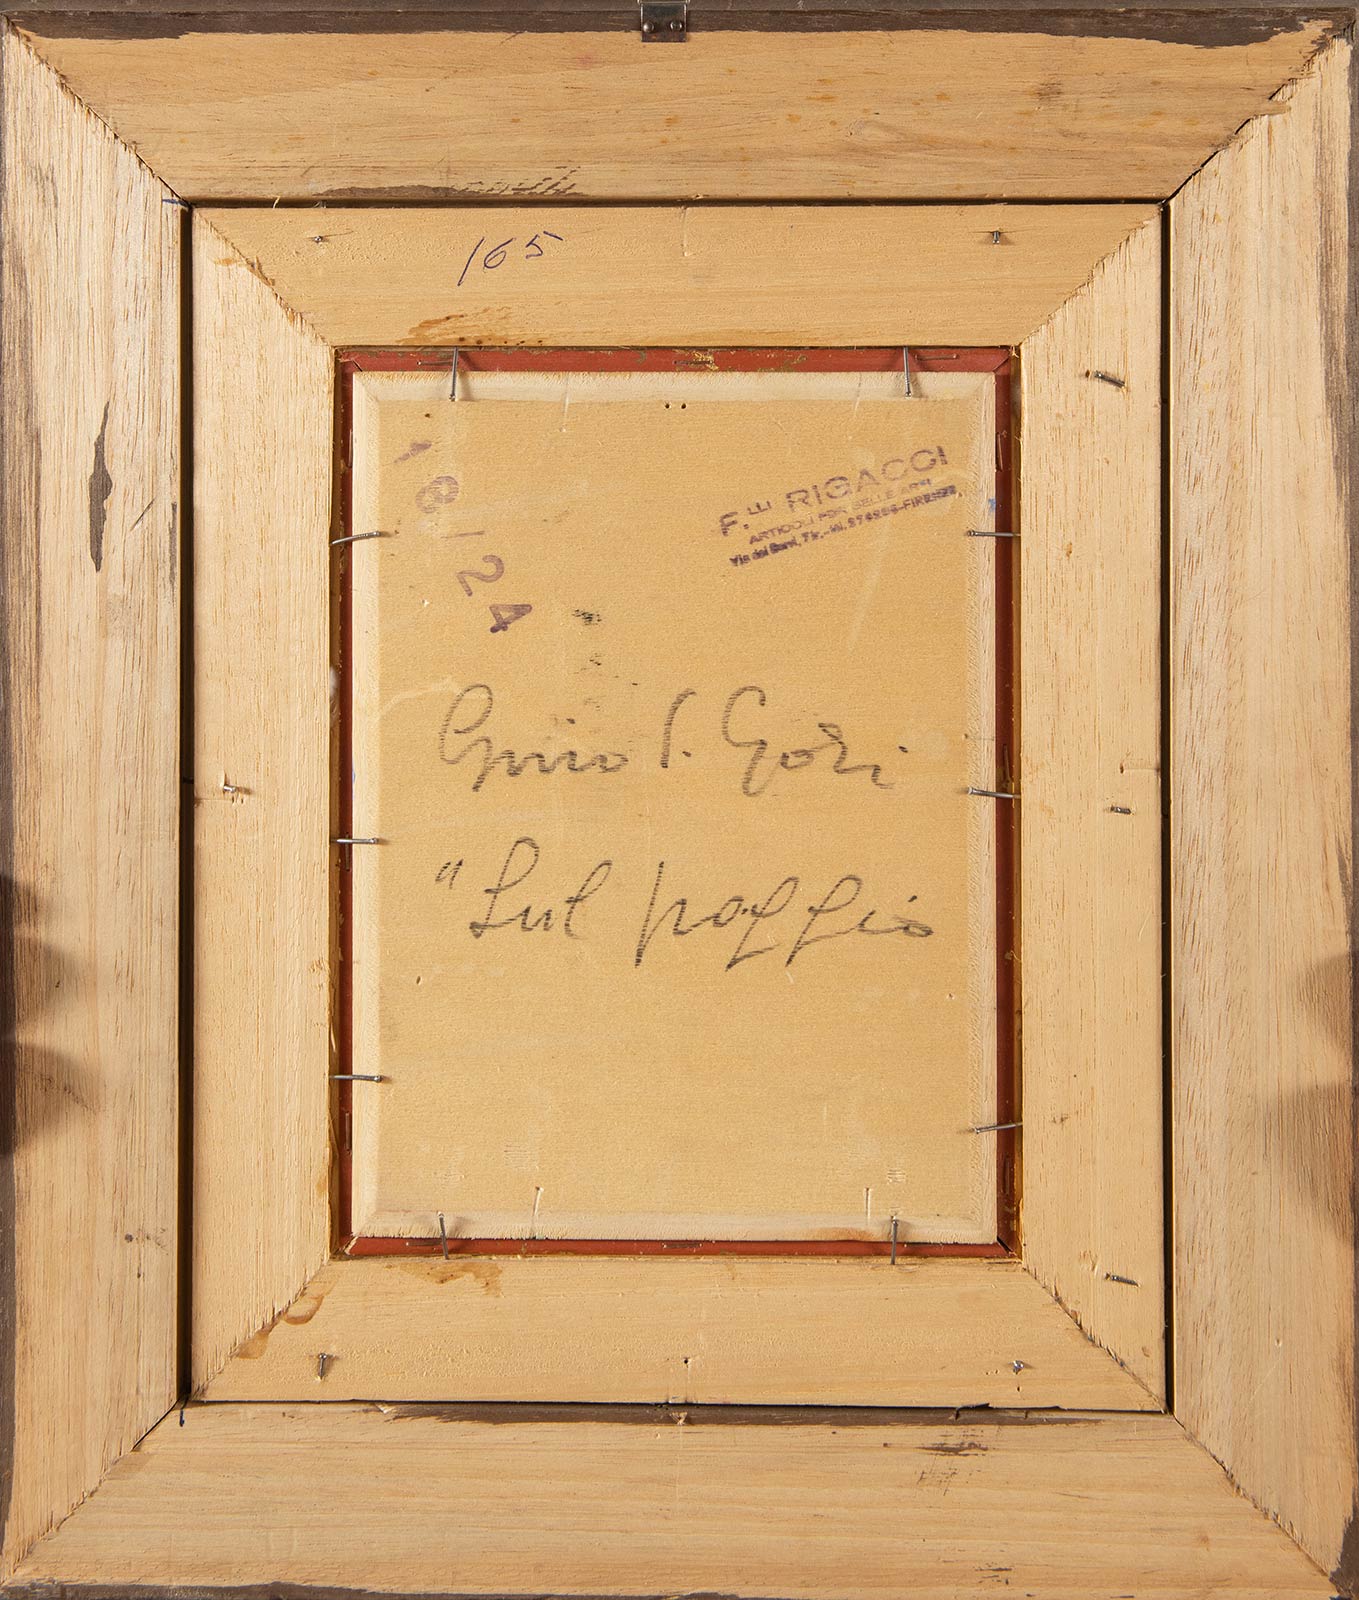 165
18/24
F.LLI RIGACCI
ARTICOLI PER BELLE ARTI
Via dei Servi, 71r.-tel. 216206-FIRENZE
Gino P. Gori
"Sul poggio